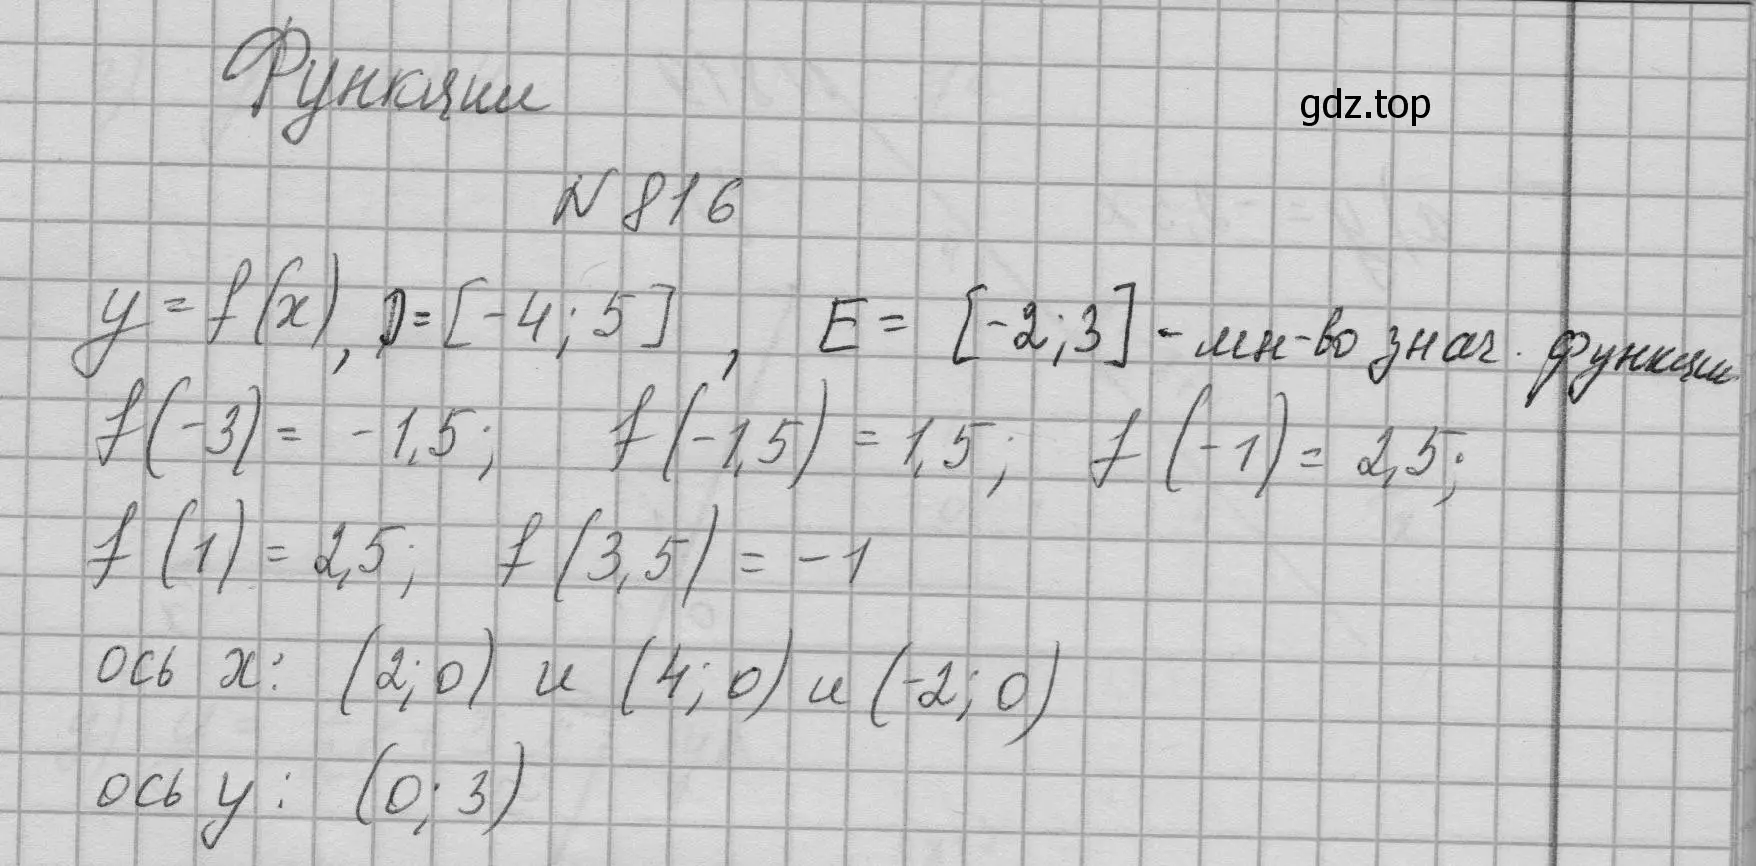 Функции
gdz.top
N 816
y = f(x), D = [-4; 5], E = [-2; 3] - мн-во знач. функции
f(-3) = -1,5; f(-1,5) = 1,5; f(-1) = 2,5;
f(1) = 2,5; f(3,5) = -1
ось x: (2; 0) и (4; 0) и (-2; 0)
ось y: (0; 3)